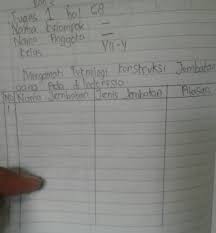 Tugas 1 Hal 68
Nama Kelompok -
Nama Anggota -
Kelas VII-4
Mengamati Teknologi Konstruksi Jembatan
yang Ada di Indonesia
No Nama Jembatan Jenis Jembatan Alasan
1